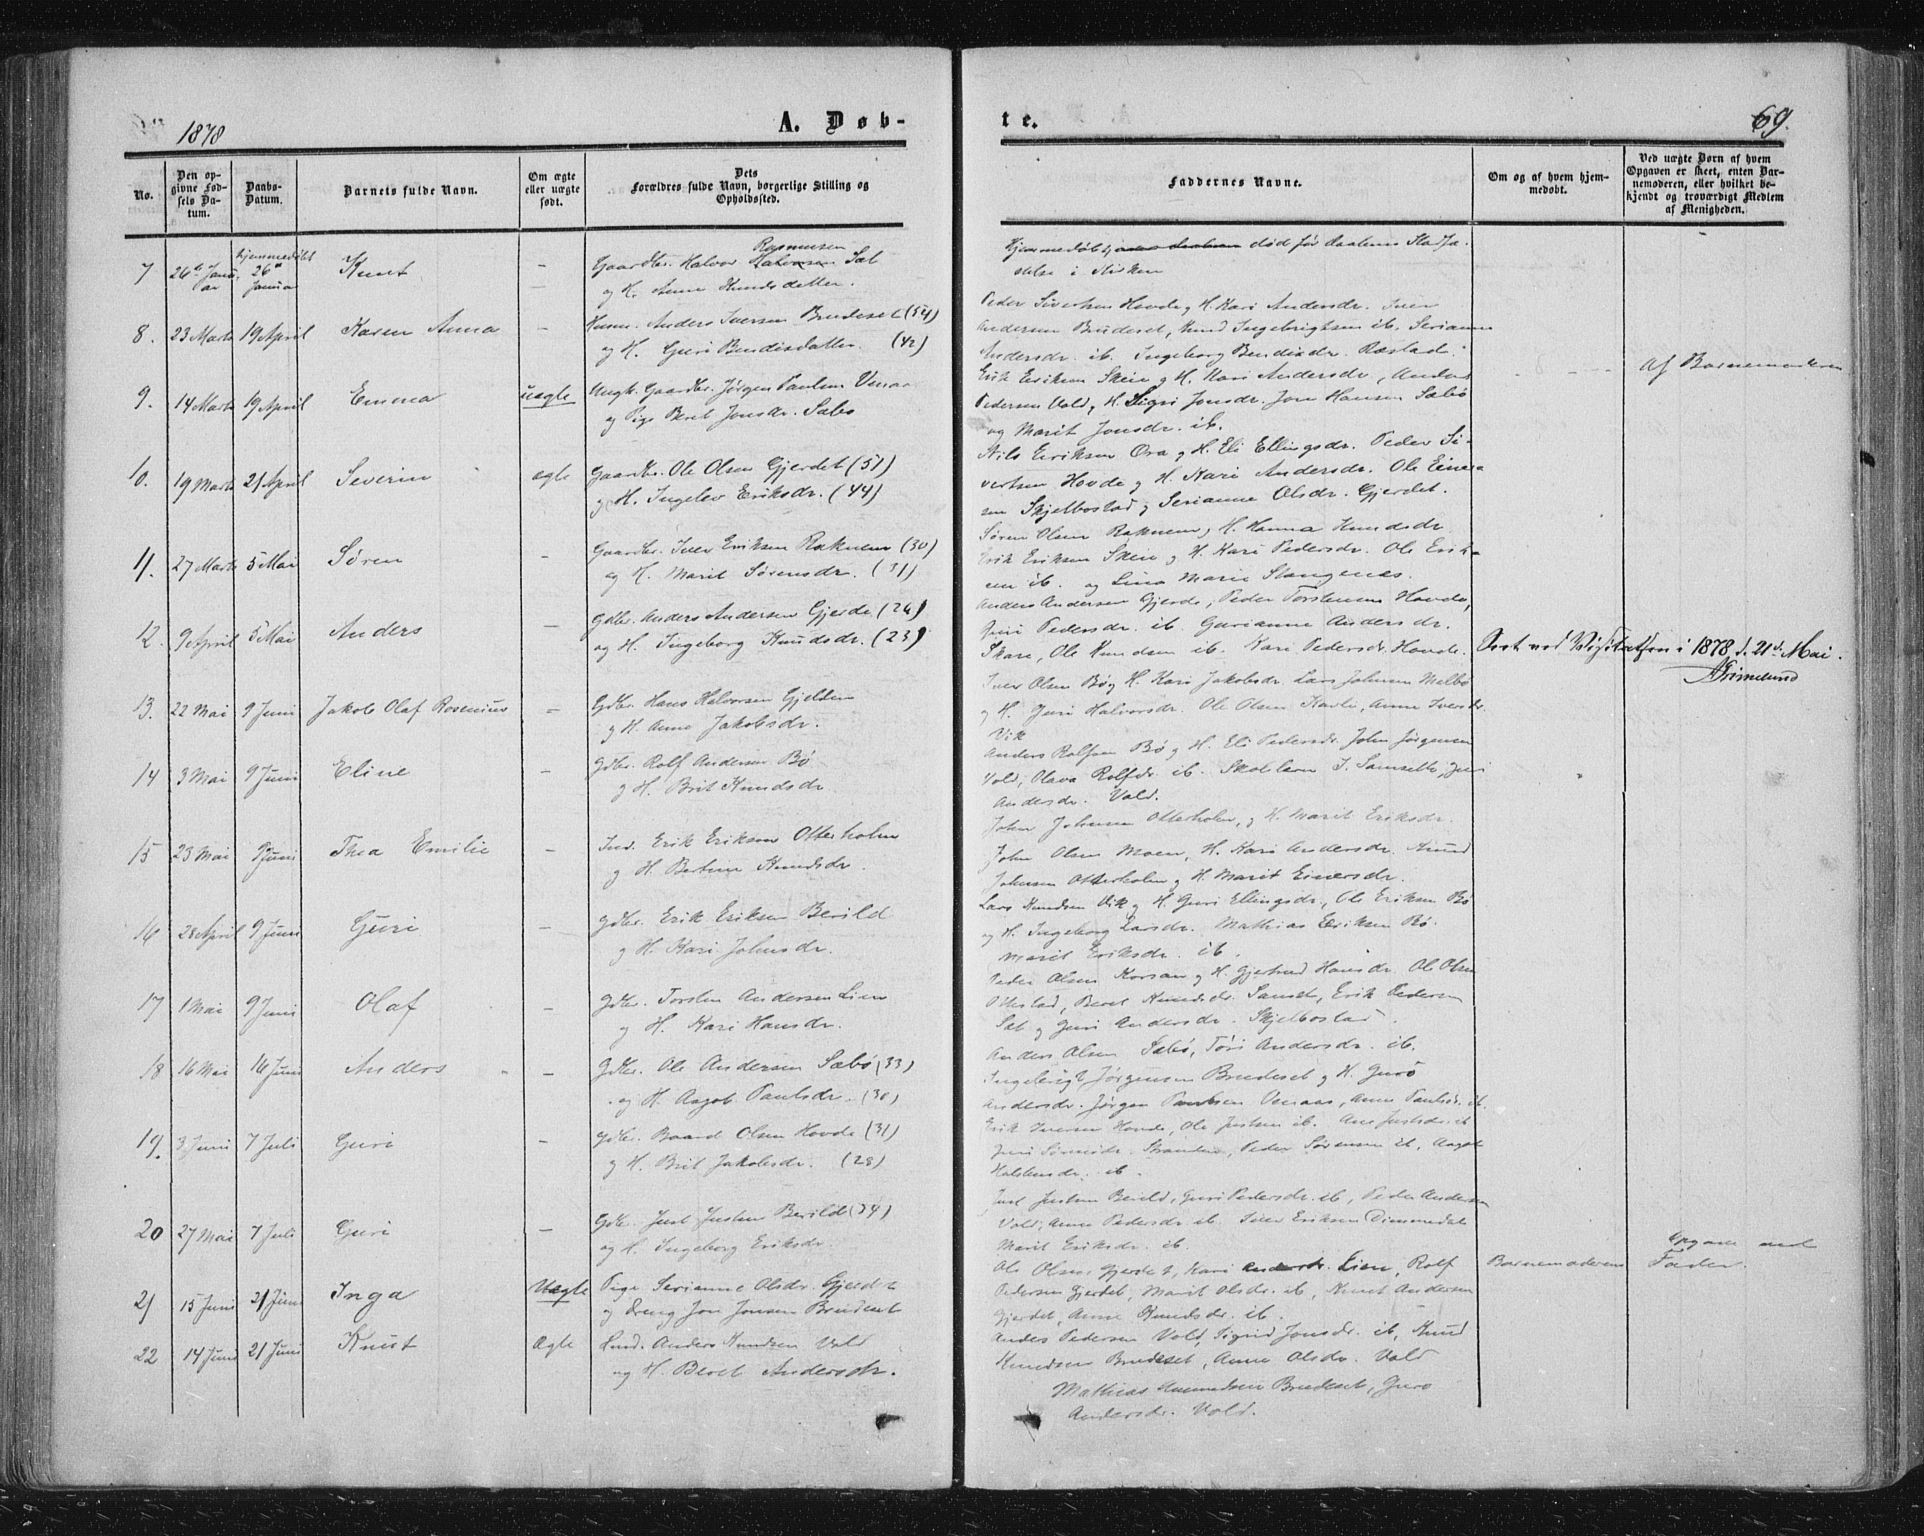 1878
A. Døb-
te.
69.
No.
Den opgivne Fødsels Datum.
Daabs-Datum.
Barnets fulde Navn.
Om ægte eller uægte født.
Dets Forældres fulde Navn, borgerlige Stilling og Opholdssted.
Faddernes Navne.
Om og af hvem hjemmedøbt.
Ved uægte Børn af hvem Opgaven er skeet, enten Barnemoderen, eller hvilket bekjendt og troværdigt Medlem af Menigheden.
7 26de Januar hjemmedøbt 26de Januar Knut – Gaardbr. Halvor Rasmusen Sæt
og H. Anne Knudsdatter.
Hjemmedøbt, død før daabens Stadfæstelse i Kirken
8. 23 Marts 19 April Karen Anna – Husm. Anders Iversen Brudeset (54)
og H. Guri Bendixdatter. (42)
Peder Sivertsen Hovde og H. Kari Andersdr. Iver
Andersen Brudeset, Knud Ingebrigtsen ib. Serianne
Andersdr. ib. Ingeborg Bendixdr.
9. 14 Marts 19 April Emma uægte Ungk. Gaardbr. Jørgen Paulsen Venaas
og Pige Beret Jonsdr. Sæbø
Erik Eriksen Skeie og H. Kari Andersdr, Anders
Pedersen Vold, og H. Sigri Jonsdr. Jon Hansen Sæbø
og Marit Jonsdr. ib.
Af Barnemoderen
10. 19 Marts 21 April Severin ægte Gaardbr. Ole Olsen Gjerdet (51)
og H. Ingelev Eriksdr. (44)
Nils Eriksen Ora og H. Eli Ellingsdr. Peder Si-
vertsen Hovde og H. Kari Andersdr. Ole Einer-
sen Skjelbostad og Serianne Olsdr. Gjerdet.
11. 27 Marts 5 Mai Søren – Gaardbr. Iver Eriksen Raknem (30)
og H. Marit Sørensdr. (31)
Søren Olsen Raknem og H. Hanna Knudsdr
Erik Eriksen Skeie og H. Kari Pedersdr. Ole Erik-
sen ib. og Lina Marie Stangenes.
12. 9 April 5 Mai Anders – Gdbr. Anders Andersen Gjerde (26)
og H. Ingeborg Knudsdr. (23)
Anders Andersen Gjerde, Peder Torstensen Hovde,
Guri Pedersdr. ib. Gurianne Andersdr.
Skare, Ole Knudsen ib. Kari Pedersdr. Hovde.
Seet ved Visitatsen i 1878 d. 21de Mai.
AGrimelund
13. 22 Mai 9 Juni Jakob Olaf Rosenius – Gdbr. Hans Halvorsen Gjelden
og H. Anne Jakobsdr.
Iver Olsen Bø og H. Kari Jakobsdr. Lars Johnsen Melbø
og H. Guri Halvorsdr. Ole Olsen Kavli, Anne Iversdr.
Vik
14 3 Mai 9 Juni Eline – Gdbr. Rolf Andersen Bø
og H. Brit Knudsdr
Anders Rolfsen Bø og H. Eli Pedersdr. John Jørgensen
Vold, Olava Rolfsdr. ib. Skolelærer J. Samseth, Guri
Andersdr. Vold.
15 23 Mai 9 Juni Thea Emilie – Ind. Erik Eriksen Otterholm
og H. Bertine Knudsdr.
John Johnsen Otterholm, og H. Marit Eriksdr.
John Olsen Moen, H. Kari Andersdr. Knud
Johnsen Otterholm og H. Marit Einersdr.
16 28 April 9 Juni Guri – Gdbr. Erik Eriksen Berild
og H. Kari Johnsdr.
Lars Knudsen Vik og H. Guri Ellingsdr, Ole Eriksen Bø
og H. Ingeborg Larsdr. Mathias Eriksen Bø.
Marit Eriksdr. ib.
17 1 Mai 9 Juni Olaf – Gdbr. Torsten Andersen Lien
og H. Kari Hansdr.
Peder Olsen Korsan og H. Gjertrud Hansdr. Ole Olsen
Otestad, Beret Knudsdr. Samset, Erik Pedersen
Sæt og Guri Andersdr. Skjelbostad.
18 16 Mai 16 Juni Anders – Gdbr. Ole Andersen Sæbø (33)
og H. Aagot Paulsdr. (30)
Anders Olsen Sæbø, Tøri Andersdr. ib.
Ingebrigt Jørgensen Brudeset og H. Guro
Andersdr. Jørgen Paulsen Venaas, Anne Paulsdr. ib.
19. 3 Juni 7 Juli Guri – Gdbr. Baard Olsen Hovde (31)
og H. Brit Jakobsdr. (28)
Erik Iversen Hovde, Ole Justsen ib. Ane Justsdr. ib
Guri Peder Sørensen ib, Aagot
ib.
20 27 Mai 7 Juli Guri – Gdbr. Just Justsen Berild (34)
og H. Ingeborg Eriksdr.
Just Justsen Berild, Guri Pedersdr. ib, Peder Andersen
Vold, Anne Pedersdr ib. Iver Eriksen Dimmedal
Marit Eriksdr. ib.
21 15 Juni 21 Juni Inga Uægte Pige Serianne Olsdr. Gjerdet
og Dreng Jon Jonsen Brudeset
Ole Olsen Gjerdet, Kari Andersdr. Lien, Rolf
Pedersen Gjerdet, Marit Olsdr. ib, Knut Andersen
Gjerdet, Anne Knudsdr. ib.
Barnemoderen
Opgave ved Fader.
22 14 Juni 21 Juni Knut Ægte Ind. Anders Knudsen Vold
og H. Beret Andersdr.
Anders Pedersen Vold, Sigrid Jonsdr. ib, Knud
Knudsen Brudeset, Anne Olsdr. Vold
Mathias Brudeset, Guro
Andersdr. Vold.